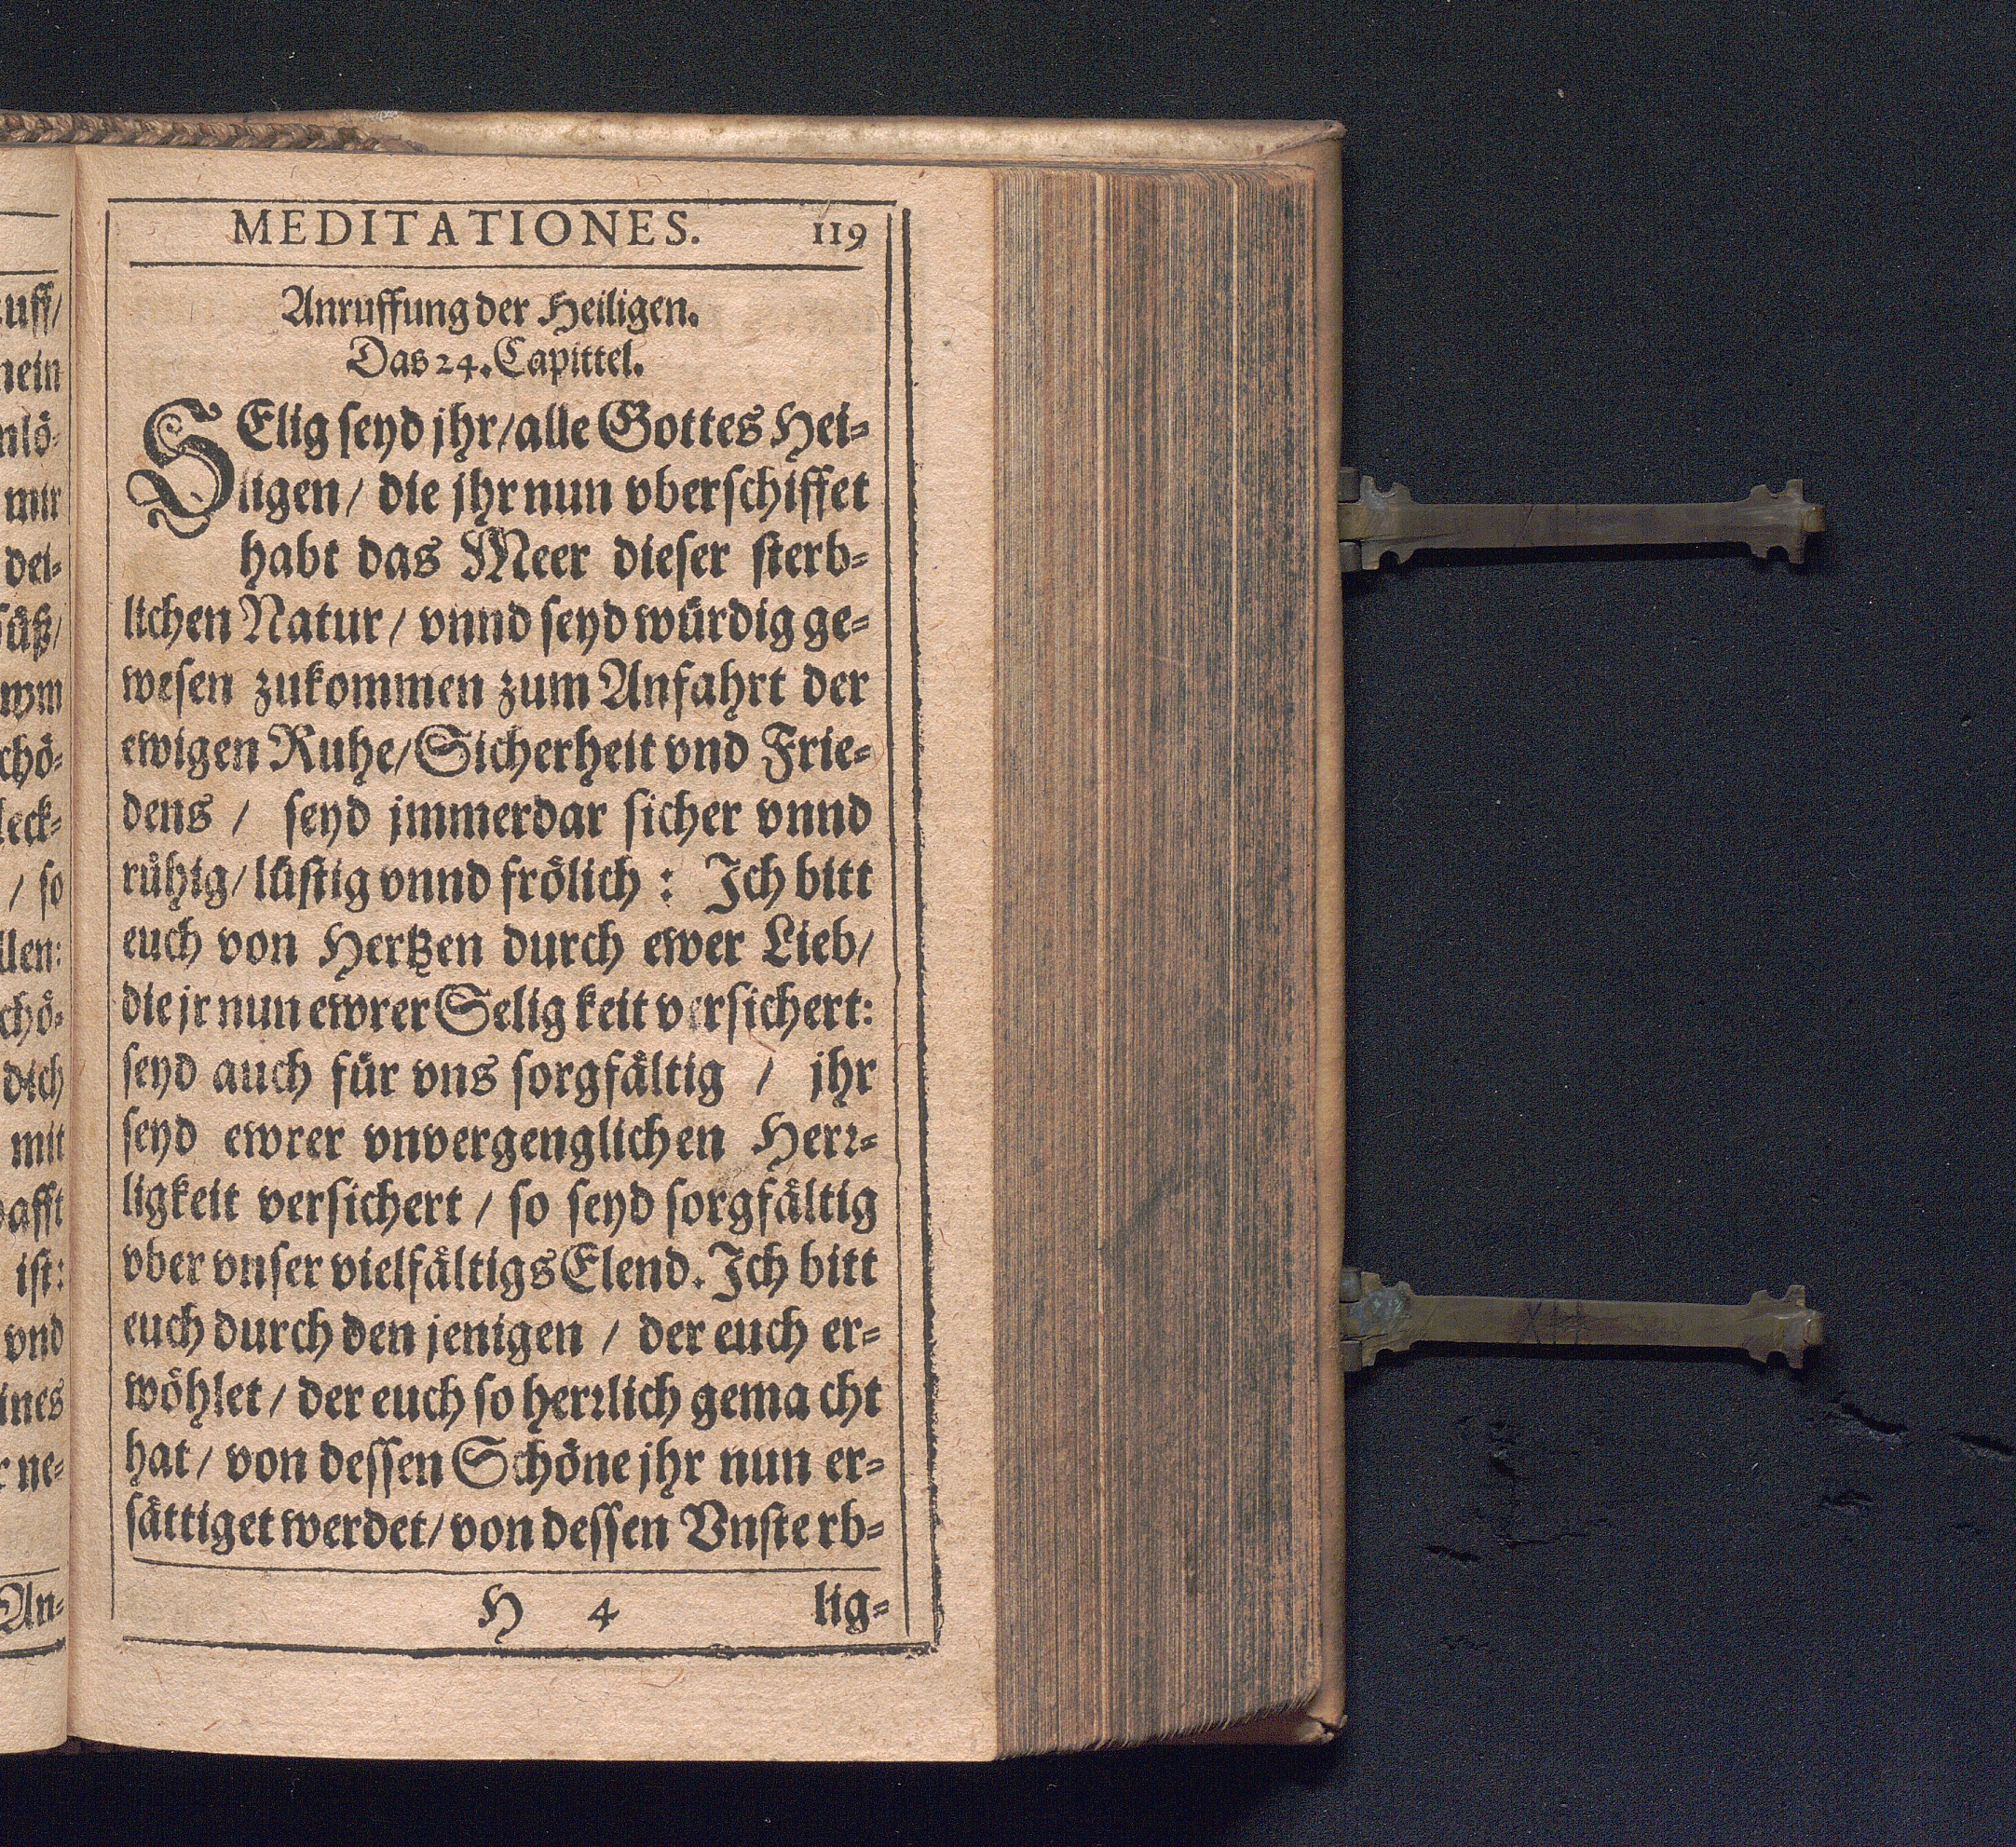 MEDITATIONES. 119
Anruffung der Heiligen.
Das 24. Capittel.
SElig seyd jhr/alle Gottes Hei-
ligen/ die jhr nun vberschiffet
habt das Meer dieser sterb-
lichen Natur/ vnnd seyd würdig ge-
wesen zukommen zum Anfahrt der
ewigen Ruhe/Sicherheit vnd Frie-
dens / seyd jmmerdar sicher vnnd
rühig/lüstig vnnd frölich : Ich bitt
euch von Hertzen durch ewer Lieb/
die jr nun ewrer Selig keit versichert:
seyd auch für vns sorgfältig / jhr
seyd ewrer vnvergenglichen Herr-
ligkeit versichert / so seyd sorgfältig
vber vnser vielfältigs Elend. Ich bitt
euch durch den jenigen / der euch er-
wöhlet / der euch so herrlich gema cht
hat / von dessen Schöne jhr nun er-
sättiget werdet/von dessen Vnste rb-
H 4 lig-
uff/
nein
nlö-
mir
dei-
süß/
wym
chö-
leck-
/ so
llen:
chö-
dich
mit
afft
ist:
vnd
ines
r ne-
An-